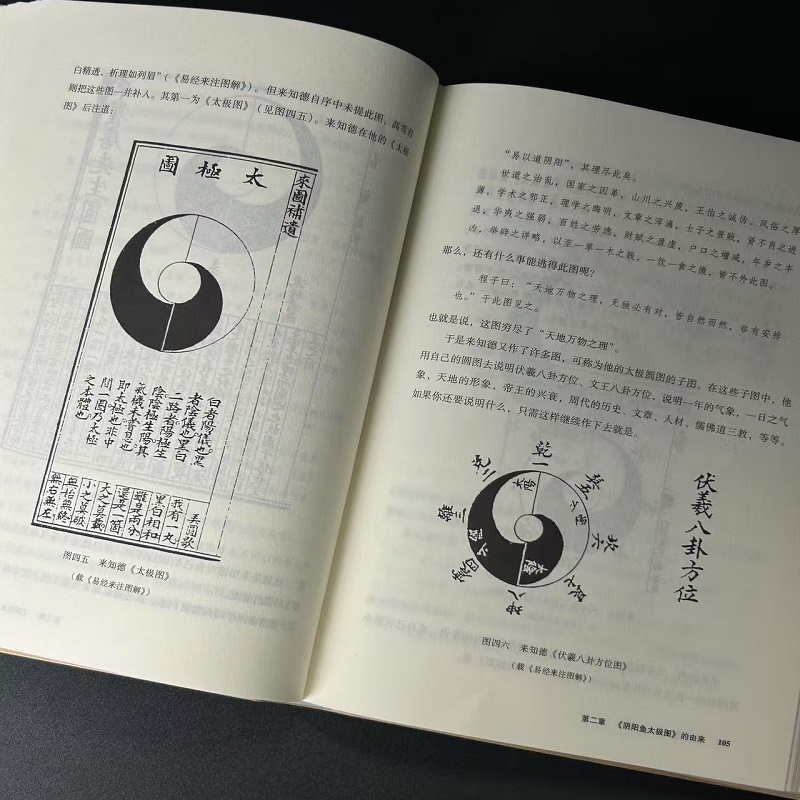 白精透，析理如列眉”（《易经来注图解》）。但来知德自序中未提此图，高雪君
则把这些图一并补入。其第一为《太极图》（见图四五）。来知德在他的《太极
图》后注道：
來圖補遺
太極圖
白者陽儀也黑
者陰儀也黑白
二路者陽極生
陰陰極生陽其
氣機未嘗息也
即太極也非中
間一圈乃太極
之本體也
弄圓歌
我有一丸
黑白相和
雖是兩分
還是一箇
大之莫載
小之莫破
無始無終
無右無左
图四五 来知德《太极图》
（载《易经来注图解》）
“易以道阴阳”，其理尽此矣。
世道之治乱，国家之因革，山川之兴废，王伯之诚伪，风俗之厚
薄，学术之邪正，理学之晦明，文章之淳漓，士子之贵贱，贤不肖之进
退，华夷之强弱，百姓之劳逸，财赋之盈虚，户口之增减，年岁之丰
凶，举辟之详略，以至一草一木之贱，一饮一食之微，皆不外此图。
那么，还有什么事能逃得此图呢？
程子曰：“天地万物之理，无独必有对，皆自然而然，非有安排
也。”于此图见之。
也就是说，这图穷尽了“天地万物之理”。
于是来知德又作了许多图，可称为他的太极圆图的子图。在这些子图中，他
用自己的圆图去说明伏羲八卦方位、文王八卦方位，说明一年的气象，一日之气
象，天地的形象，帝王的兴衰，周代的历史、文章、人材、儒佛道三教，等等。
如果你还要说明什么，只需这样继续作下去就是。
伏羲八卦方位
乾一
兑二
離三
震四
巽五
坎六
艮七
坤八
图四六 来知德《伏羲八卦方位图》
（载《易经来注图解》）
第二章 《阴阳鱼太极图》的由来 105